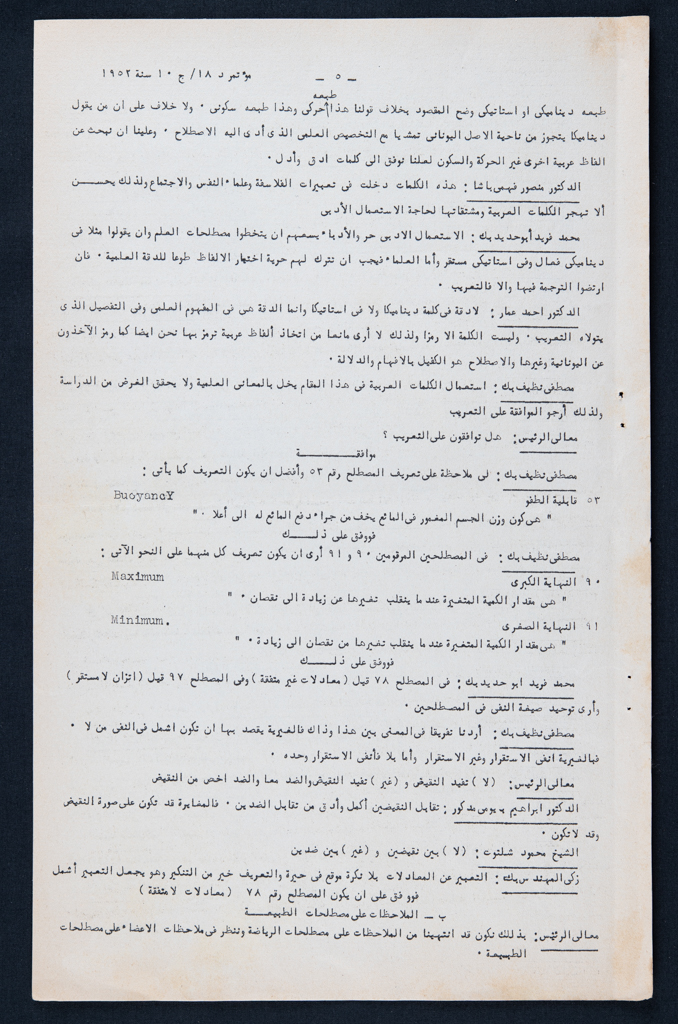 — ٥ —
مؤتمر د ١٨ / ج ١٠ سنة ١٩٥٢
طبيعه
طبيعه ديناميكى او استاتيكى وضح المقصود بخلاف قولنا هذا حركى وهذا طبيعه سكونى ٠ ولا خلاف على ان من يقول
ديناميكا يتجوز من ناحية الاصل اليونانى تمشيا مع التخصيص العلمى الذى أدى اليه الاصطلاح ٠ وعلينا ان نبحث عن
الفاظ عربية اخرى غير الحركة والسكون لعلنا نوفق الى كلمات ادق وأدل ٠
الدكتور منصور فهمى باشا : هذه الكلمات دخلت فى تعبيرات الفلاسفة وعلماء النفس والاجتماع ولذلك يحســـن
ألا تهجر الكلمات العربية ومشتقاتها لحاجة الاستعمال الأدبى
محمد فريد أبو حديد بك : الاستعمال الادبى حر والأدباء يسعهم ان يتخطوا مصطلحات العلم وان يقولوا مثلا فى
ديناميكى فعال وفى استاتيكى مستقر وأما العلماء فيجب ان نترك لهم حرية اختيار الالفاظ طوعا للدقة العلمية ٠ فان
ارتضوا الترجمة فبها والا فالتعريب ٠
الدكتور احمد عمار : لادقة فى كلمة ديناميكا ولا فى استاتيكا وانما الدقة هى فى المفهوم العلمى وفى التفصيل الذى
يتولاه التعريب ٠ وليست الكلمة الا رمزا ولذلك لا أرى مانعا من اتخاذ ألفاظ عربية نرمز بها نحن ايضا كما رمز الآخذون
عن اليونانية وغيرها والاصطلاح هو الكفيل بالافهام والدلالة ٠
مصطفى نظيف بك : استعمال الكلمات العربية فى هذا المقام يخل بالمعانى العلمية ولا يحقق الغرض من الدراسة
ولذلك أرجو الموافقة على التعريب
معالى الرئيس : هل توافقون على التعريب ؟
موافقـــــــــة
مصطفى نظيف بك : لى ملاحظة على تعريف المصطلح رقم ٥٣ وأفضل ان يكون التعريف كما يأتى :
٥٣ قابلية الطفو
BuoyancY
" هى كون وزن الجسم المغمور فى المائع يخف من جراء دفع المائع له الى أعلا ٠ "
فووفق على ذلــــك
مصطفى نظيف بك : فى المصطلحين المرقومين ٩٠ و ٩١ أرى ان يكون تعريف كل منهما على النحو الآتى :
٩٠ النهاية الكبرى
Maximum
" هى مقدار الكمية المتغيرة عند ما ينقلب تغيرها عن زيادة الى نقصان ٠ "
٩١ النهاية الصغرى
Minimum.
" هى مقدار الكمية المتغيرة عند ما ينقلب تغيرها من نقصان الى زيادة ٠ "
فووفق على ذلــــك
محمد فريد ابو حديد بك : فى المصطلح ٧٨ قيل ( معادلات غير متفقة ) وفى المصطلح ٩٧ قيل ( اتزان لا مستقر )
وأرى توحيد صيغة النفى فى المصطلحين ٠
مصطفى نظيف بك : أردنا تفريقا فى المعنى بين هذا وذاك فالغيرية يقصد بها ان تكون اشمل فى النفى من لا ٠
فبالغيرية انفى الاستقرار وغير الاستقرار وأما بلا فأنفى الاستقرار وحده ٠
معالى الرئيس : ( لا ) تفيد النقيض و ( غير ) تفيد النقيض والضد معا والضد اخص من النقيض
الدكتور ابراهيم بيومى مدكور : تقابل النقيضين أكمل وأدق من تقابل الضدين ٠ فالمغايرة قد تكون على صورة النقيض
وقد لا تكون ٠
الشيخ محمود شلتوت : ( لا ) بين نقيضين و ( غير ) بين ضدين
زكى المهندس بك : التعبير عن المعادلات بلا نكرة موقع فى حيرة والتعريف خير من التنكير وهو يجعل التعبير أشمل
فووفق على ان يكون المصطلح رقم ٧٨ ( معادلات لا متفقة )
ب – الملاحظات على مصطلحات الطبيعـــــة
معالى الرئيس : بذلك نكون قد انتهينا من الملاحظات على مصطلحات الرياضة وننظر فى ملاحظات الاعضاء على مصطلحات
الطبيعة ٠